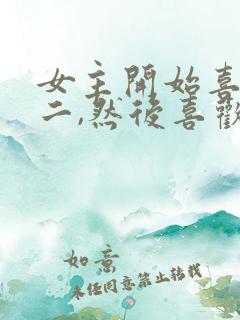 女主開始喜
二,然後喜歡
如意
未經同意禁止轉載